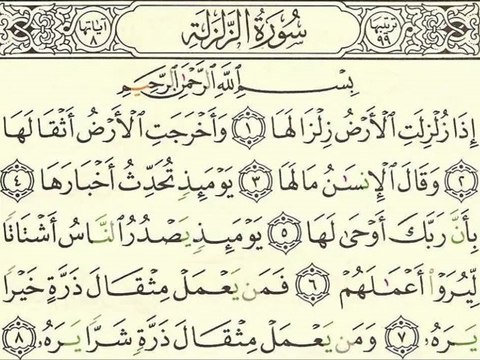 ترتيبها ٩٩ سُورَةُ الزَّلْزَلَةِ آياتها ٨
بِسْمِ اللَّهِ الرَّحْمَٰنِ الرَّحِيمِ
إِذَا زُلْزِلَتِ الْأَرْضُ زِلْزَالَهَا ١ وَأَخْرَجَتِ الْأَرْضُ أَثْقَالَهَا
٢ وَقَالَ الْإِنسَٰنُ مَالَهَا ٣ يَوْمَئِذٍ تُحَدِّثُ أَخْبَارَهَا ٤
بِأَنَّ رَبَّكَ أَوْحَىٰ لَهَا ٥ يَوْمَئِذٍ يَصْدُرُ النَّاسُ أَشْتَاتًا
لِّيُرَوْا أَعْمَٰلَهُمْ ٦ فَمَن يَعْمَلْ مِثْقَالَ ذَرَّةٍ خَيْرًا
يَرَهُۥ ٧ وَمَن يَعْمَلْ مِثْقَالَ ذَرَّةٍ شَرًّا يَرَهُۥ ٨